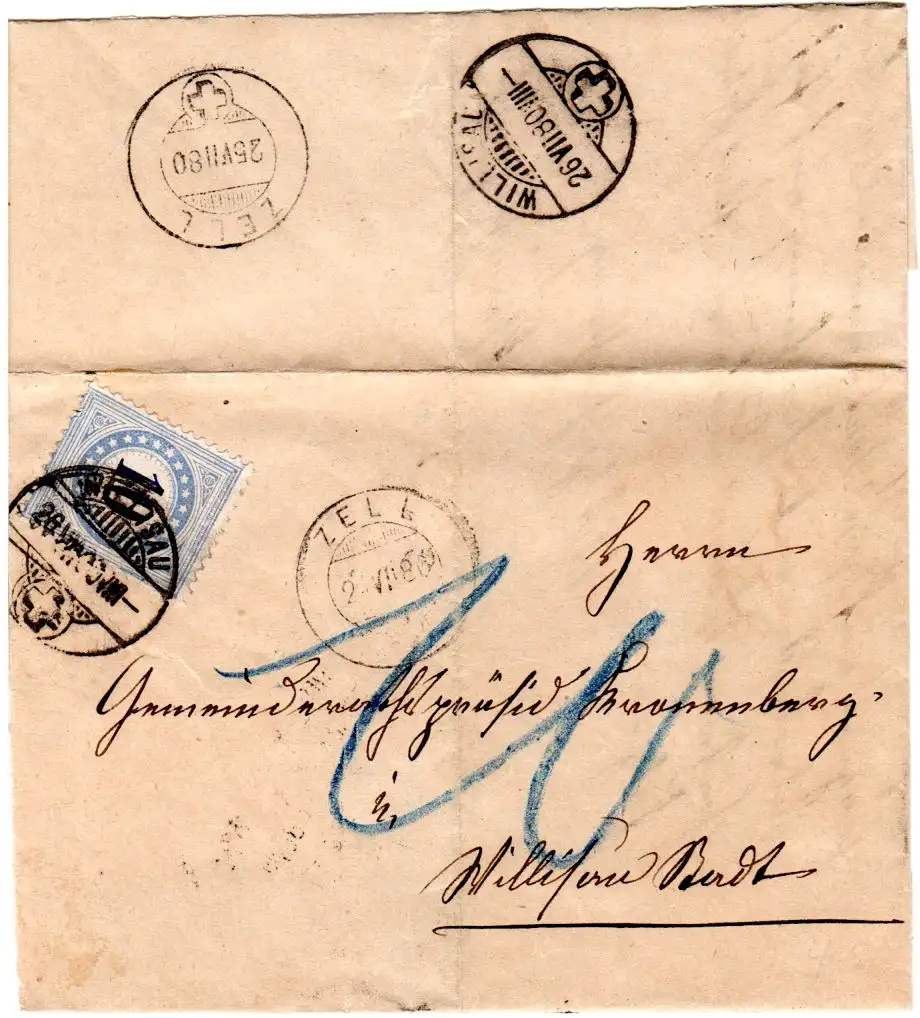 ZELL
25 VII 80
WILLISAU
26 VII 80 VIII
10
WILLISAU
26 VII 80 VIII
ZELL
VII 80
10
Herrn
Gemeinderathspräsid Kronenberg
in
Willisau Stadt